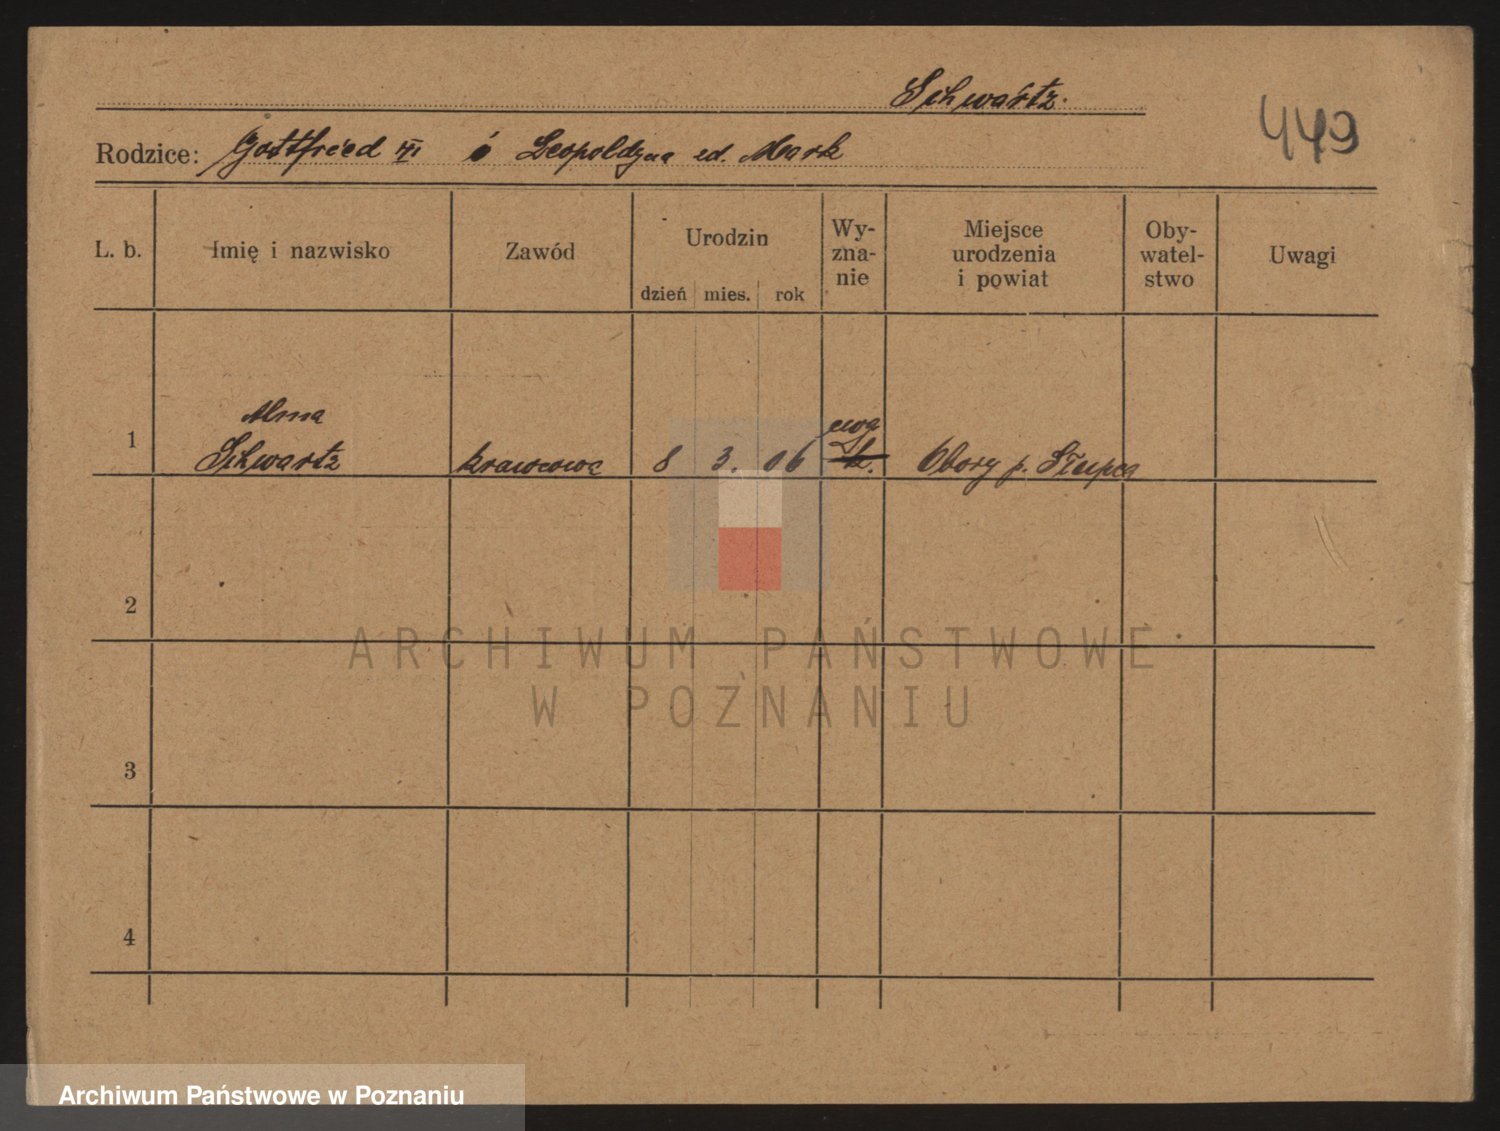 Schwartz.
449
Rodzice: Gottfried i Leopoldyna Mark
L. b. Imię i nazwisko Zawód Urodzin dzień mies. rok Wy-
zna-
nie Miejsce
urodzenia
i powiat Oby-
watel-
stwo Uwagi
Alma
1 Schwartz krawcowa 8 3. 06 ewg Obory p. Słupca
2
3
4
ARCHIWUM PAŃSTWOWE
W POZNANIU
Archiwum Państwowe w Poznaniu